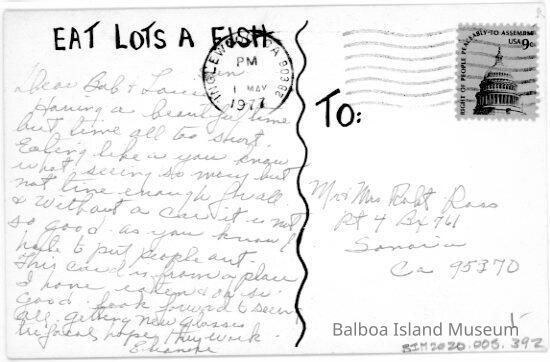 EAT LOTS A FISH
INGLEWOOD, CA 903
PM
1 MAY
1977
RIGHT OF PEOPLE PEACEABLY TO ASSEMBLE
USA 9c
Dear Bob &
Having a beautiful time
but time all too short.
Eating like a you know
what, seeing so many but
not time enough for all
& without a car it is not
so good as you know I
hate to put people out.
This card is from a place
I have eaten & oh so
Good. Look forward to seein
all. getting new glasses
hope they work.
Blanche
TO:
Mr & Mrs Robt Ross
Rt 4 Bx 761
Sonora
Ca 95370
Balboa Island Museum
BIM2020.005.392